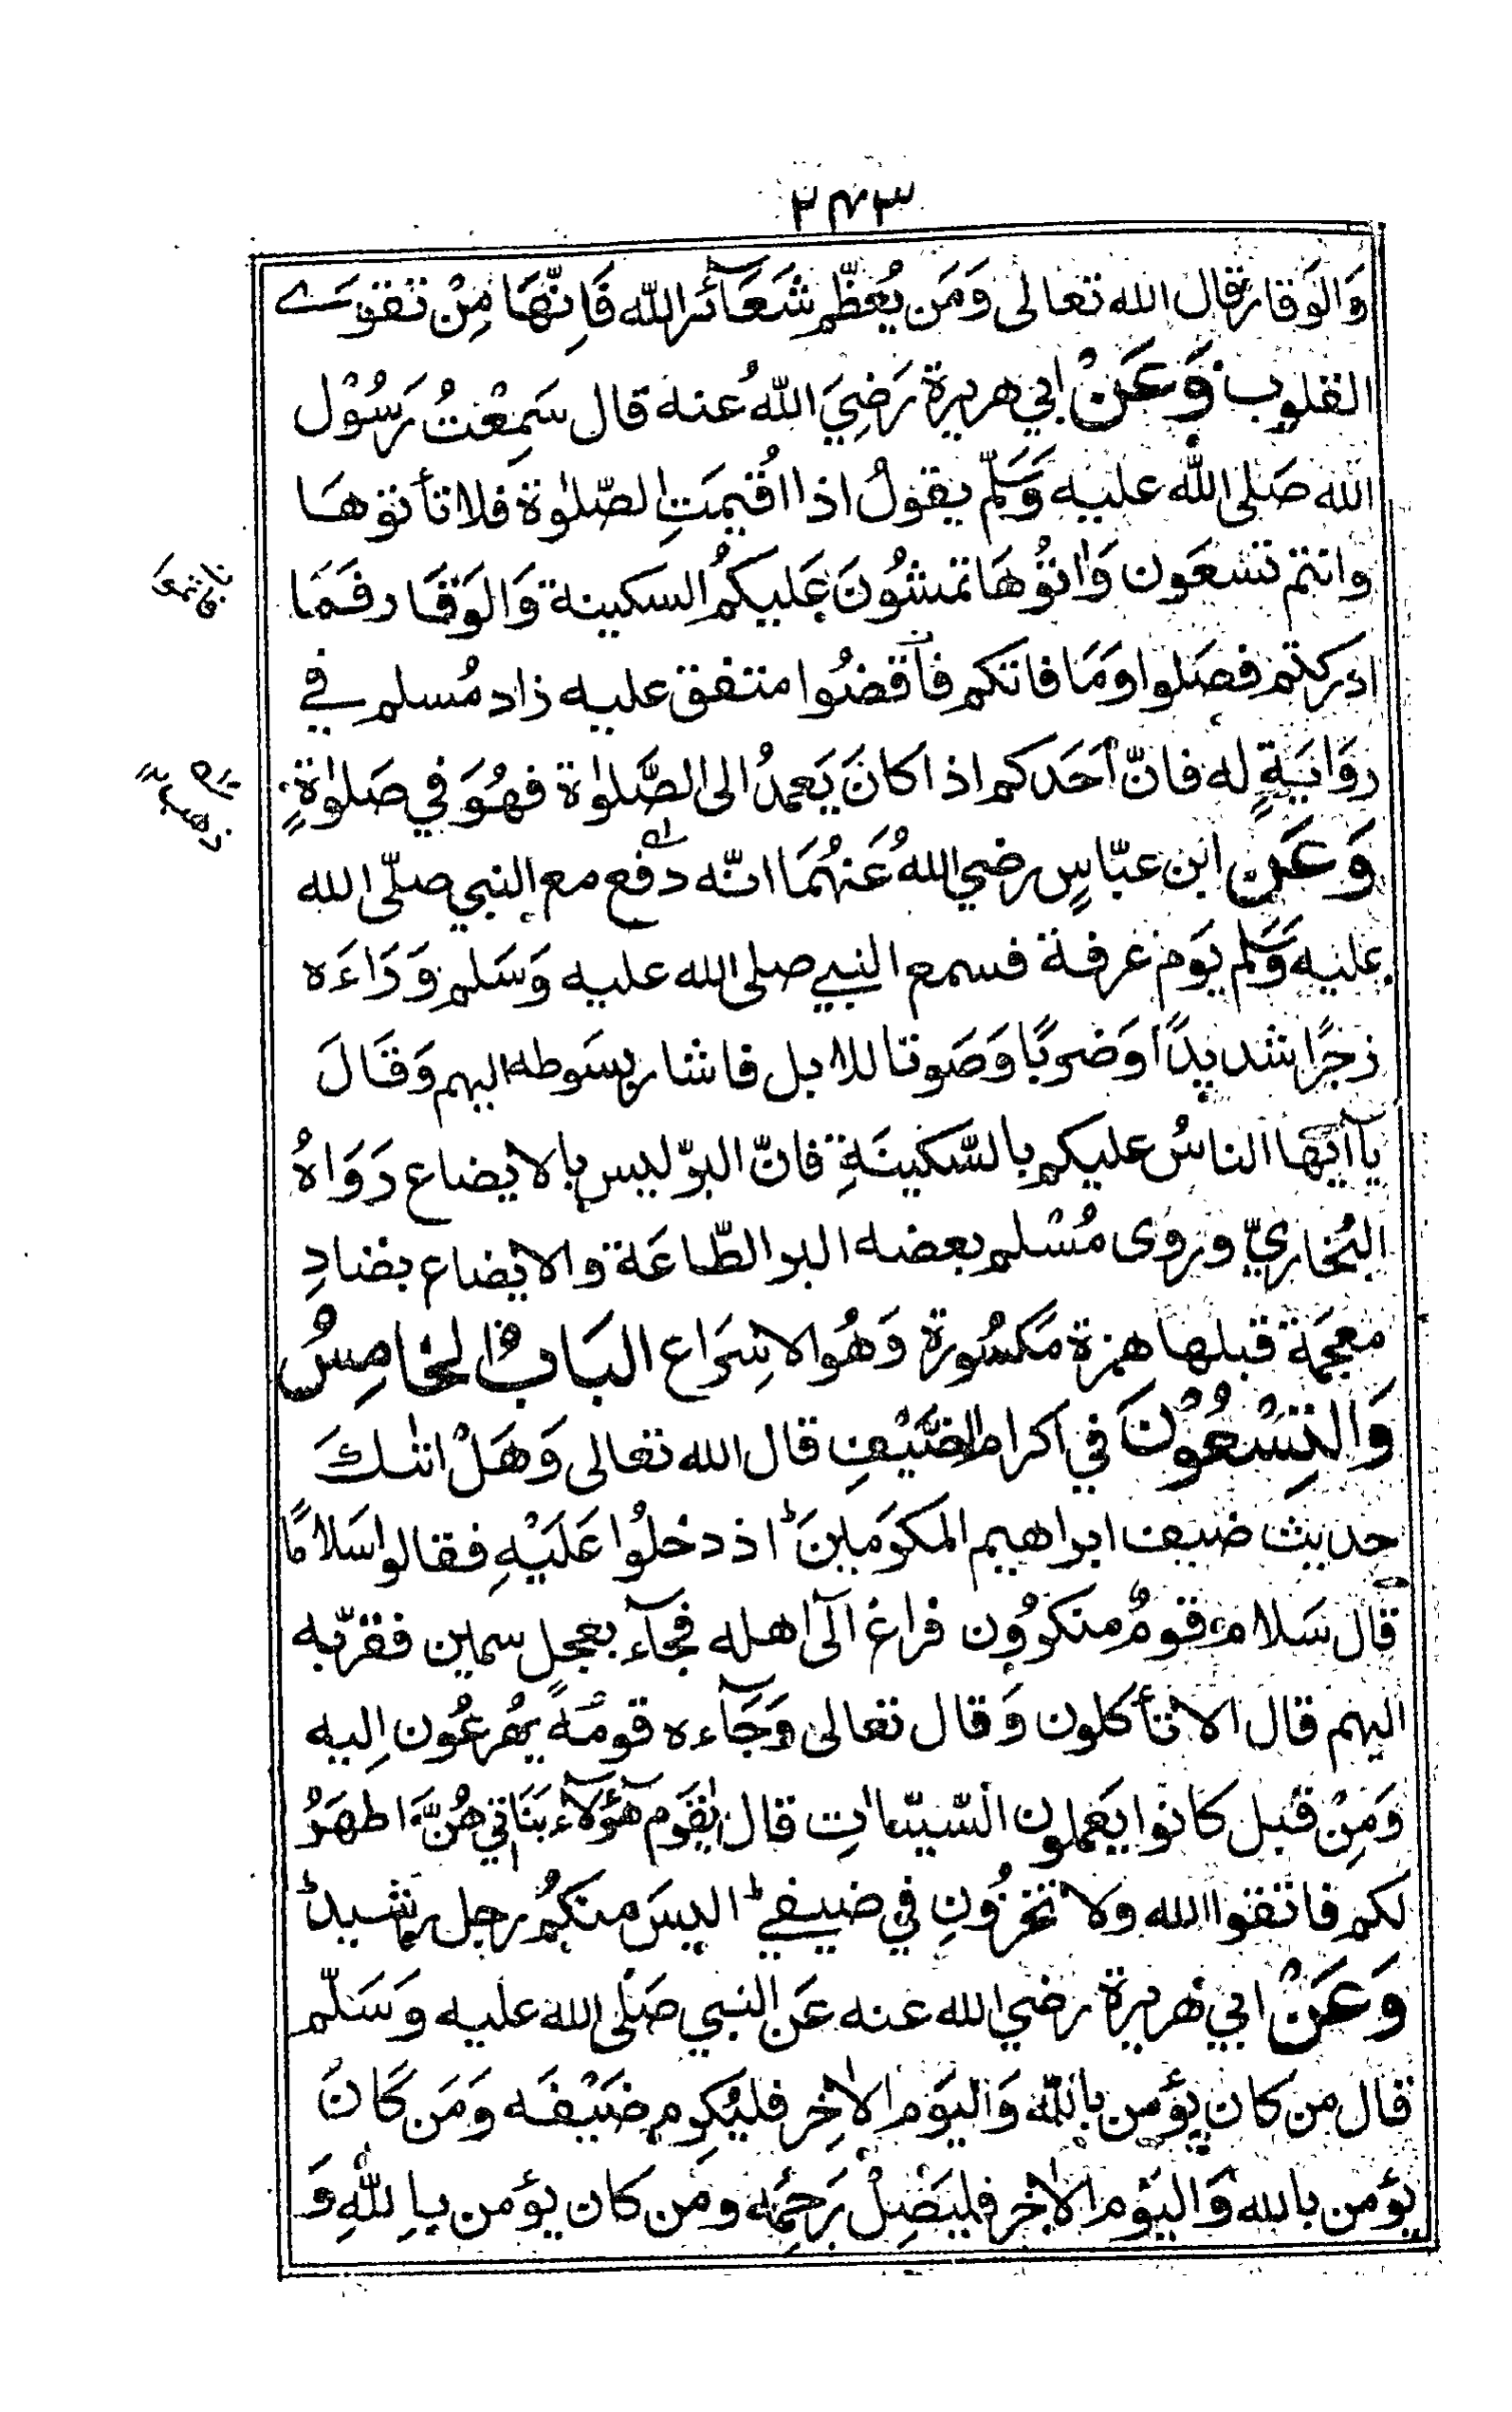 ۲۴۳
وَالوَقار قال الله تعالى وَمَن يُعَظّم شَعَآئر الله فَاِنّهَا مِنْ تقوَے
القلوب وَعَنْ ابي هريرة رَضِيَ اللهُ عنه قال سَمِعْتُ رَسُوْل
الله صَلى الله عليه وَسَلّم يقولُ اذا اُقيمَتِ الصّلوٰة فلا تأتوْهَا
وانتم تسْعَون وَاتوُْهَا تمشُونَ عَليكمُ السكينة وَالوَقَار فَمَا
ادركتم فصَلوا وَمَا فاتكم فَاَقضُوا متفق عليه زاد مُسلم في
روَايَةٍ له فانّ اَحَدكم اذا كانَ يَعمدُ الى الصَّلوٰة فهُوَ في صَلوٰةٍ
ذهب
وَعَن ابن عبّاسٍ رضي اللهُ عَنهُمَا انّه دفع مع النبي صلّى الله
عليه وَسَلم يَوم عرفة فسمع النبي صلى الله عليه وَسَلم وَرَاءَه
زجرًا شديدًا وَضربًا وَصَوتا للابل فاشار بسَوطه اليهم وَقَالَ
يآ ايّها الناسُ عليكم بالسَّكينَةِ فانّ البرّ ليس بالايضاع رَوَاهُ
البُخاريّ وروى مُسْلم بعضه البر الطّاعَة والايضاع بضادٍ
معجمة قبلها همزة مَكسُورة وَهُو الاسِرَاع البَابُ الخامِسُ
وَالتِسْعُوْنَ في اكرام الضَّيْفِ قال الله تعالى وَهَلْ اتٰىكَ
حديث ضيف ابراهيم المكرَمينَ ؕ اذ دخلُوا عَلَيْهِ فقالوا سَلامًا
قال سَلام قومٌ منكرُون فراغ الٓى اهله فجآء بعجل سمين فقرّبه
اليهم قال الا تأكلون وَقال تعالى وَجَآءه قومُهُ يُهرعُون اِليه
وَمِنْ قبل كانوا يَعملون السّيّئات قال يٰقَوم هٰٓؤلآء بَنَاتي هُنَّ اطهَرُ
لكم فاتّقوا الله ولا تخزُونِ في ضيفيے ؕ اليسَ منكمُ رجل رشيدٌ ؕ
وَعَنْ ابي هُريرة رضي الله عنه عَن النبي صَلى الله عليه وَسَلّم
قال من كان يؤمن بالله وَاليَوم الاٰخِر فليُكرِم ضَيْفَه وَمَن كَانَ
يؤمن بالله وَاليَوْم الاٰخِر فليَصِلْ رَحِمَه ومن كان يؤمن بِاللهِ وَ